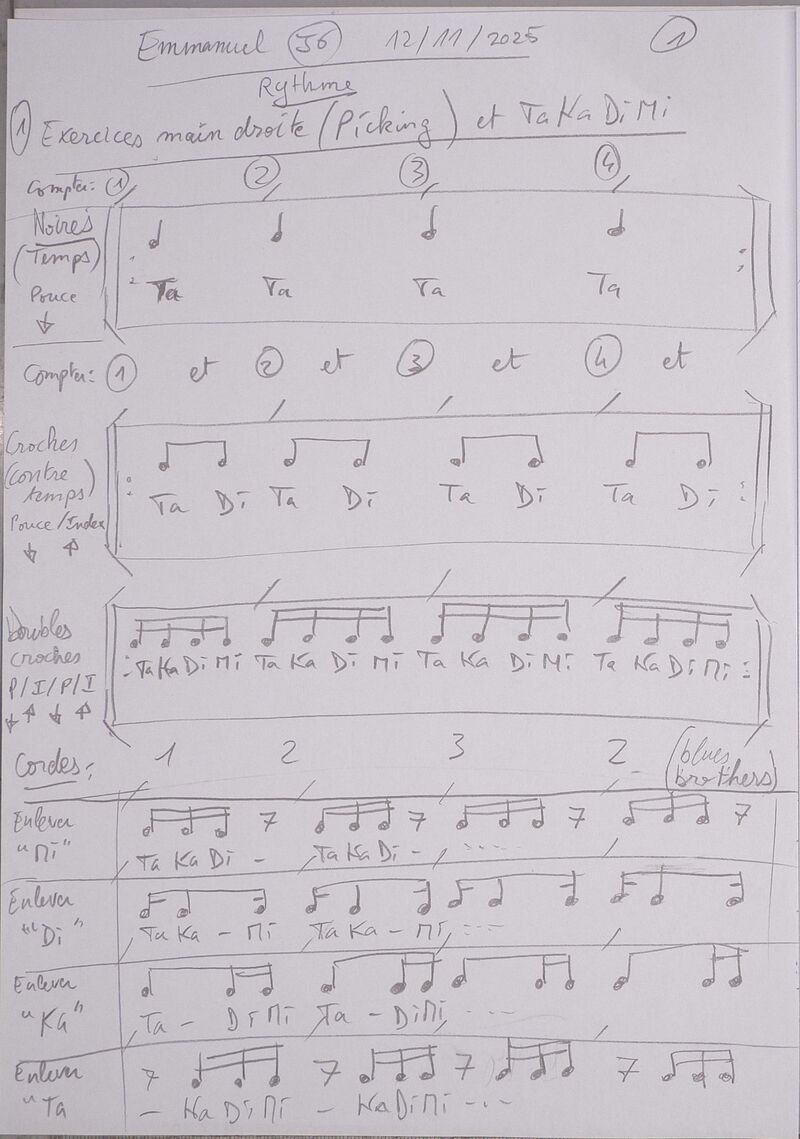 Emmanuel 56 12/11/2025 1
Rythme
1 Exercices main droite (Picking) et TaKaDiMi
Compter: 1 2 3 4
Noires
(Temps)
Pouce
Ta Ta Ta Ta
Compter: 1 et 2 et 3 et 4 et
Croches
(contre
temps)
Pouce/Index
Ta Di Ta Di Ta Di Ta Di
Doubles
croches
P/I/P/I
TaKaDiMi Ta Ka Di Mi Ta Ka Di Mi Ta KaDiMi
Cordes: 1 2 3 2 (blues
brothers)
Enlever
"Mi"
Ta KaDi - TaKaDi - ....
Enlever
"Di"
TaKa - Mi TaKa - Mi, ...
Enlever
"Ka"
Ta - DiMi Ta - DiMi, ...
Enlever
"Ta
- KaDiMi - KaDiMi ...